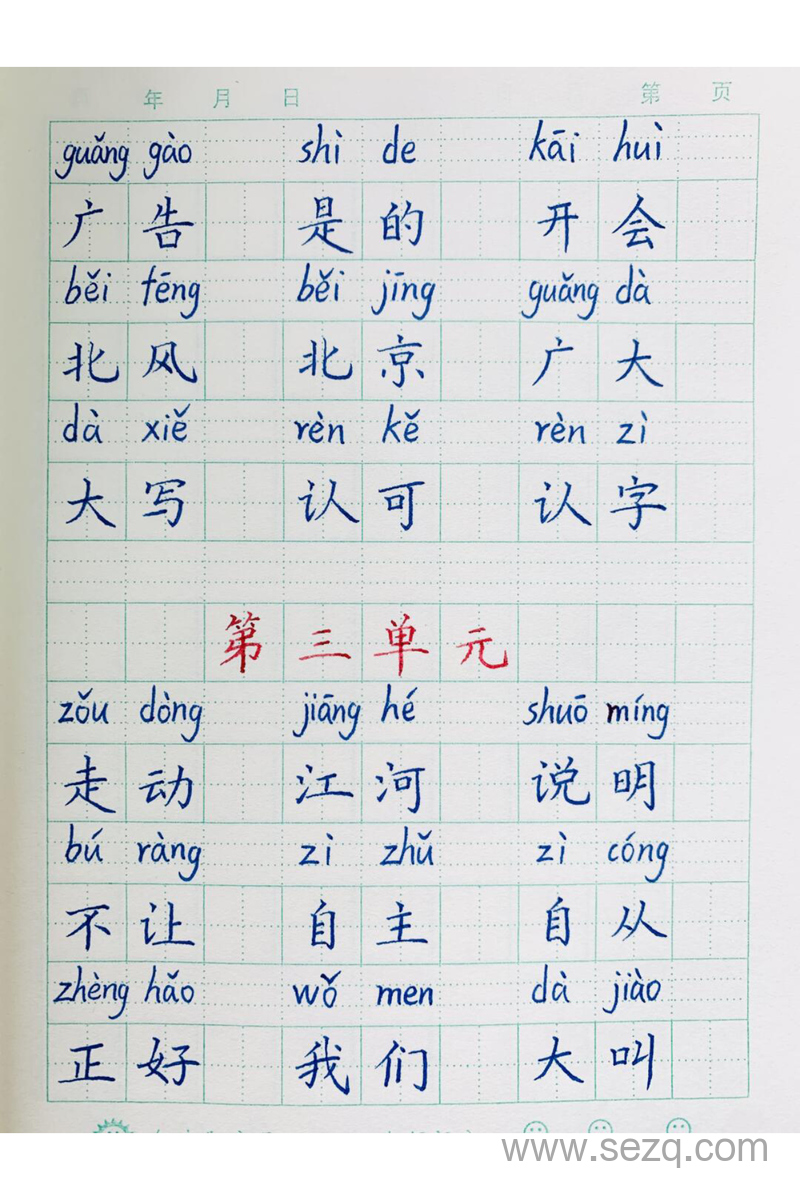 年 月 日 第 页
guǎng gào shì de kāi huì
广告 是的 开会
běi fēng běi jīng guǎng dà
北风 北京 广大
dà xiě rèn kě rèn zì
大写 认可 认字
第三单元
zǒu dòng jiāng hé shuō míng
走动 江河 说明
bú ràng zì zhǔ zì cóng
不让 自主 自从
zhèng hǎo wǒ men dà jiào
正好 我们 大叫
www.sezq.com